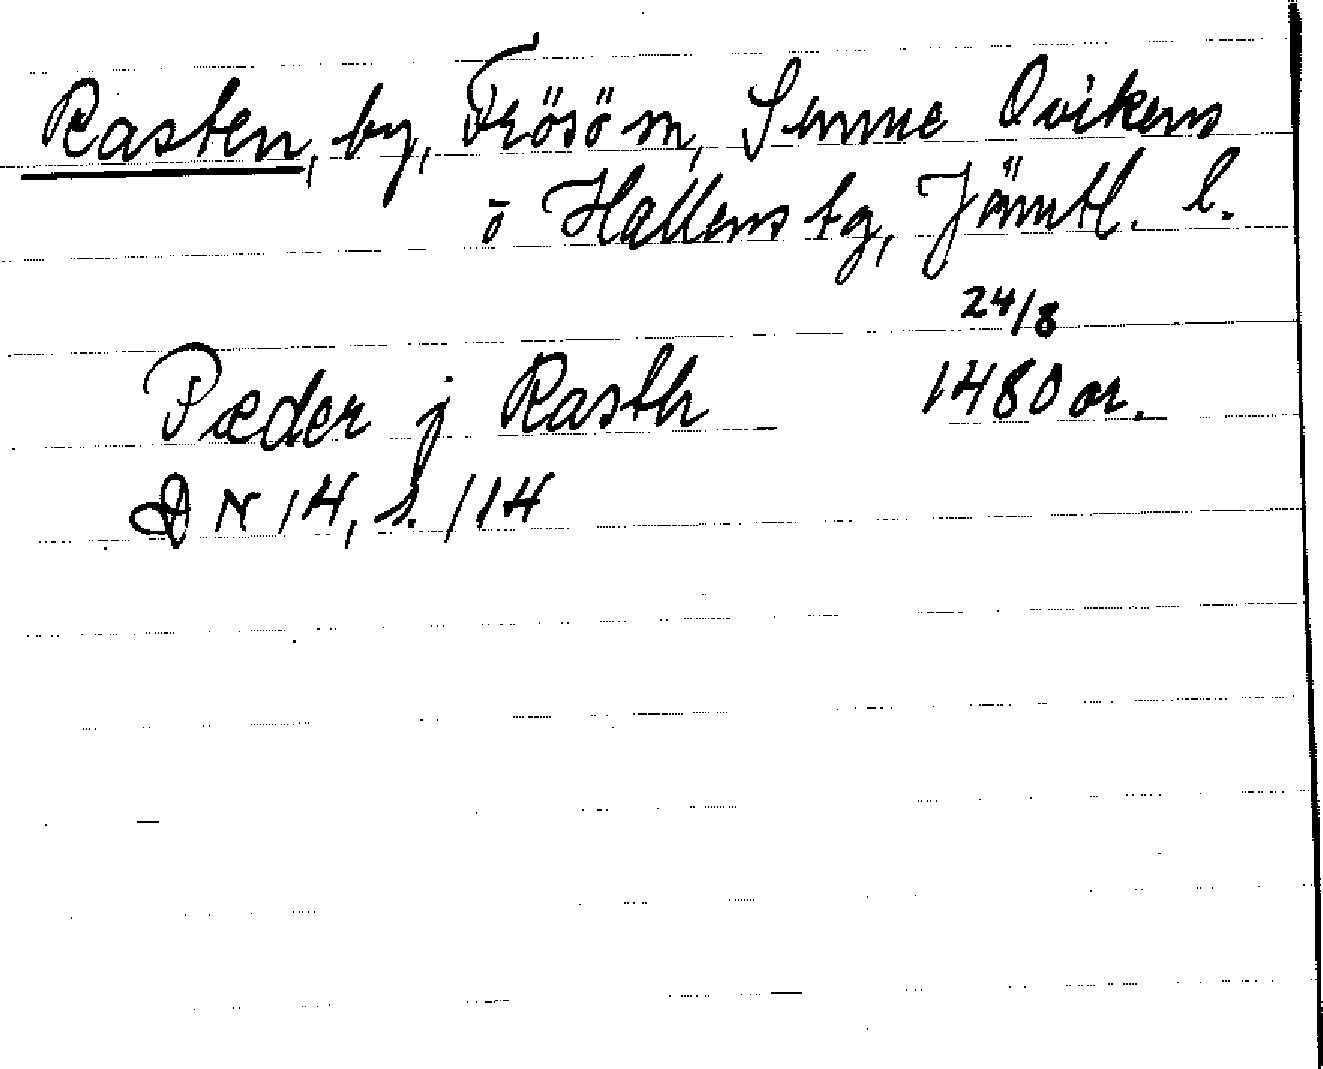 Rasten, by, Frösö sn, Sunne Ovikens
o Hallens tg, Jämtl. l.
24/8
Pæder j Rasth 1480 or.
DN 14, s. 114